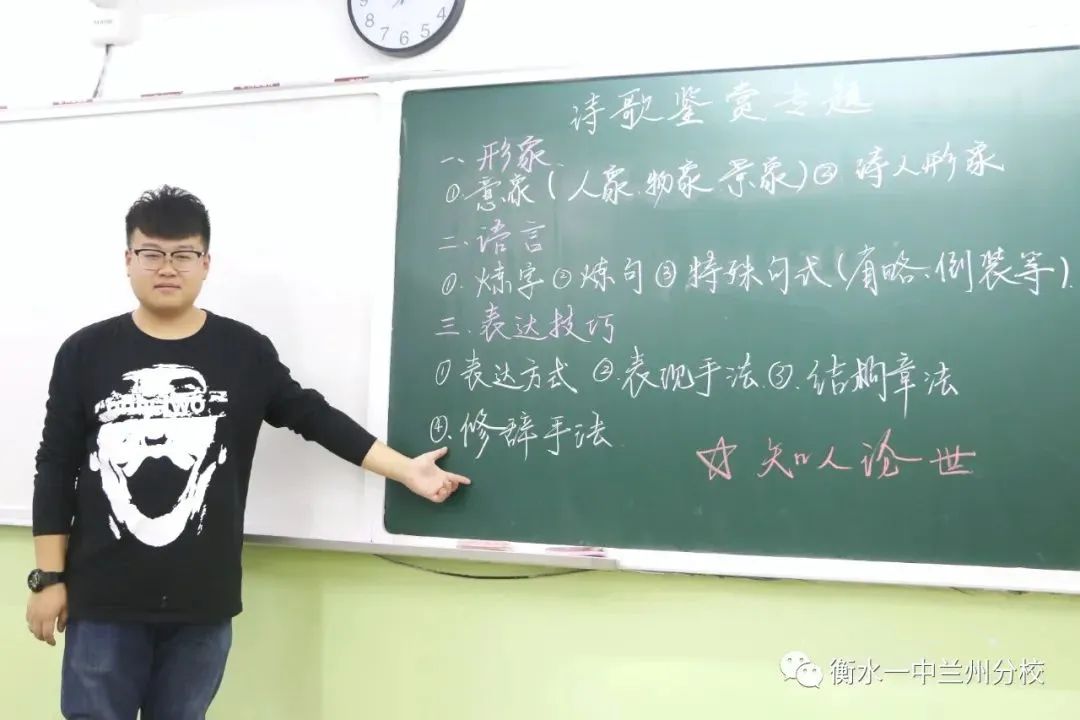 9 8 7 6 5 4
诗歌鉴赏专题
一、形象
①.意象(人象.物象.景象)② 诗人形象
二、语言
①.炼字②炼句③特殊句式(省略、倒装等).
三.表达技巧
①表达方式 ②表现手法.③.结构章法
④.修辞手法
☆知人论世
TWO
衡水一中兰州分校